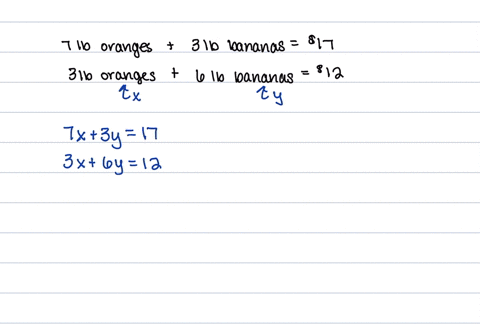 7 lb oranges + 3 lb bananas = $17
3 lb oranges + 6 lb bananas = $12
x y
7x+3y=17
3x+6y=12